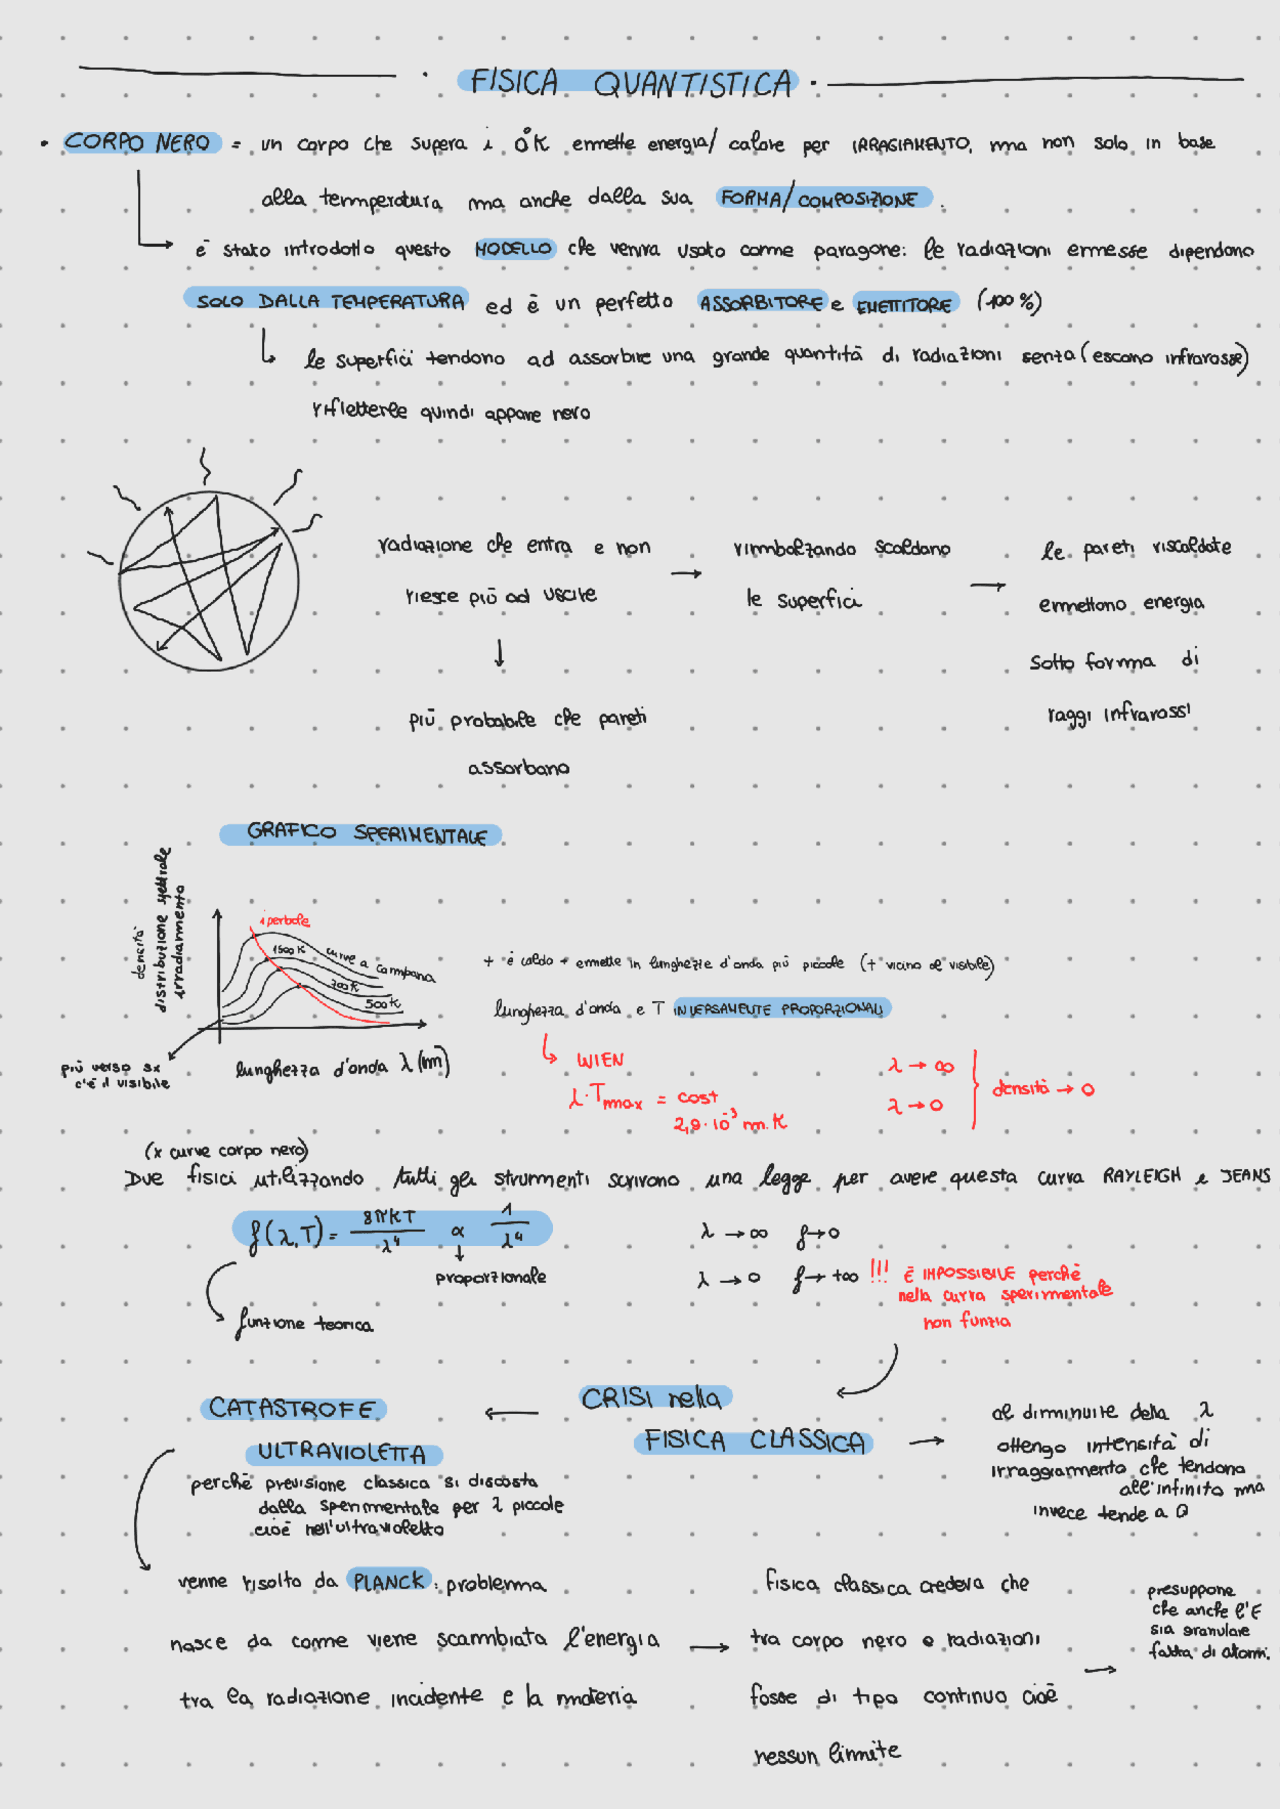 FISICA QUANTISTICA
• CORPO NERO = un corpo che supera i 0°K emette energia/calore per IRRAGIAMENTO, ma non solo in base
alla temperatura ma anche dalla sua FORMA/COMPOSIZIONE.
è stato introdotto questo MODELLO che veniva usato come paragone: le radiazioni emesse dipendono
SOLO DALLA TEMPERATURA ed è un perfetto ASSORBITORE e EMETTITORE (100%)
le superfici tendono ad assorbire una grande quantità di radiazioni senza (escono infrarosse)
rifletterle quindi appare nero
radiazione che entra e non
riesce più ad uscire
→ rimbalzando scaldano
le superfici
→ le pareti riscaldate
emettono energia
sotto forma di
raggi infrarossi
↓
più probabile che pareti
assorbano
GRAFICO SPERIMENTALE
densità
distribuzione spettrale
irradiamento
iperbole
1500K
curve a campana
700K
500K
più verso sx
c'è il visibile
lunghezza d'onda λ (m)
+ è caldo + emette in lunghezze d'onda più piccole (+ vicino al visibile)
lunghezza d'onda e T INVERSAMENTE PROPORZIONALI
WIEN
λ·Tmax = cost
2,9·10⁻³ m·K
λ → ∞
λ → 0
densità → 0
(x curve corpo nero)
Due fisici utilizzando tutti gli strumenti scrivono una legge per avere questa curva RAYLEIGH e JEANS
f(λ,T) = 8πKT/λ⁴ ∝ 1/λ⁴
↓
proporzionale
funzione teorica
λ → ∞ f → 0
λ → 0 f → +∞ !!! È IMPOSSIBILE perchè
nella curva sperimentale
non funzia
CRISI nella
FISICA CLASSICA
← CATASTROFE
ULTRAVIOLETTA
perchè previsione classica si discosta
dalla sperimentale per λ piccole
cioè nell'ultravioletto
→ al diminuire della λ
ottengo intensità di
irraggiamento che tendono
all'infinito ma
invece tende a 0
venne risolto da PLANCK: problema
nasce da come viene scambiata l'energia
tra la radiazione incidente e la materia
→ fisica classica credeva che
tra corpo nero e radiazioni
fosse di tipo continuo cioè
nessun limite
→ presuppone
che anche l'E
sia granulare
fatta di atomi.